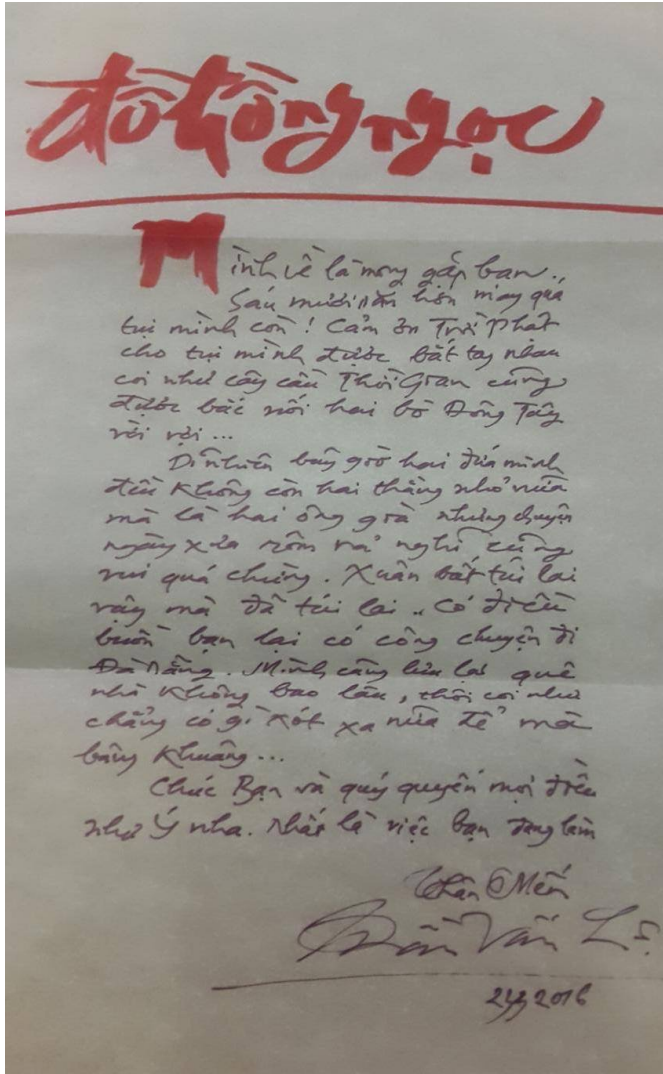 đỗ hồng ngọc
Mình về là mong gặp bạn..
Sáu mươi năm hơn may quá
tụi mình còn! Cảm ơn Trời Phật
cho tụi mình được bắt tay nhau
coi như cây cầu Thời Gian cũng
được bắc nối hai bờ Đông Tây
vời vợi...
Dĩ nhiên bây giờ hai đứa mình
đều không còn hai thằng nhỏ nữa
mà là hai ông già nhưng chuyện
ngày xưa rôm rả nghĩ cũng
vui quá chừng. Xuân bất tái lai
vậy mà đã tái lai.. Có điều
buồn bạn lại có công chuyện đi
Đà Nẵng. Mình cũng lưu lại quê
nhà không bao lâu, thôi coi như
chẳng có gì xót xa nữa để mà
bâng khuâng...
Chúc Bạn và quý quyến mọi điều
như Ý nha. Nhất là việc bạn đang làm
Thân Mến
Trần Vấn Lệ
2016